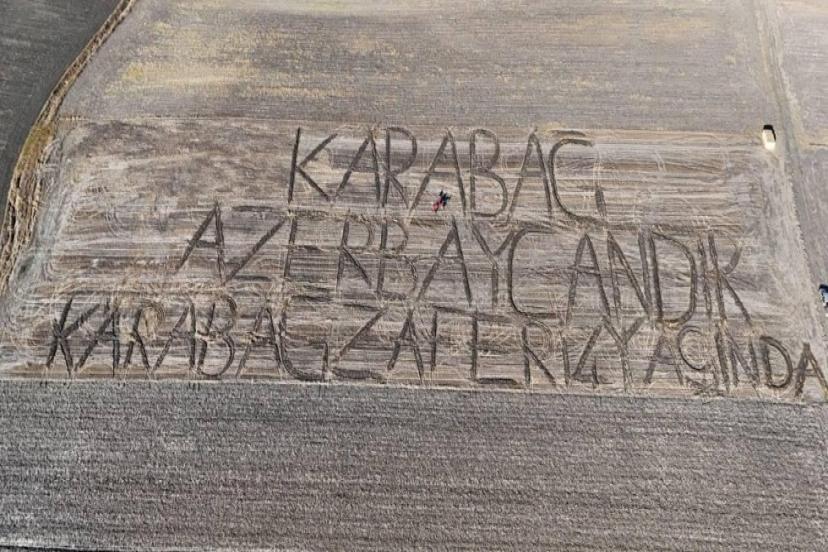 KARABAĞ,
AZERBAYCANDIR
KARABAĞ ZAFERİ 4 YAŞINDA